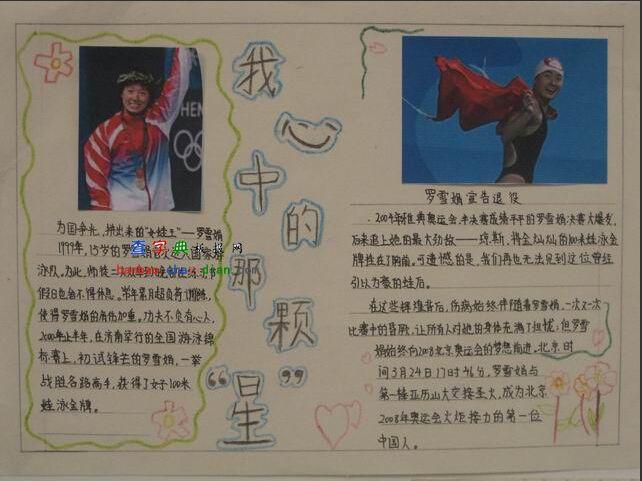 我心中的那颗“星”
为国争光,拼出来的“女蛙王”——罗雪娟
1997年,15岁的罗
国家游
泳队。为此,
假日也舍不得休息。常年累月超负荷训练,
使得罗雪娟的肩伤加重,功夫不负有心人,
2000年上半年,在济南举行的全国游泳锦
标赛上,初试锋芒的罗雪娟,一举
战胜各路高手,获得了女子100米
蛙泳金牌。
查字典手抄报网
罗雪娟宣告退役
2004年雅典奥运会,半决赛成绩平平的罗雪娟决赛大爆发,
后来追上她的最大劲敌——琼斯,将金灿灿的100米蛙泳金
牌挂在了胸前。可遗憾的是,我们再也无法见到这位曾经
引以为豪的蛙后。
在这些辉煌背后,伤病始终伴随着罗雪娟,一次又一次
比赛中的昏厥,让所有人对她的身体充满了担忧;但罗雪
娟始终向2008北京奥运会的梦想前进。北京时
间3月24日17时46分,罗雪娟与
第一棒亚历山大交接圣火,成为北京
2008年奥运会火炬接力的第一位
中国人。